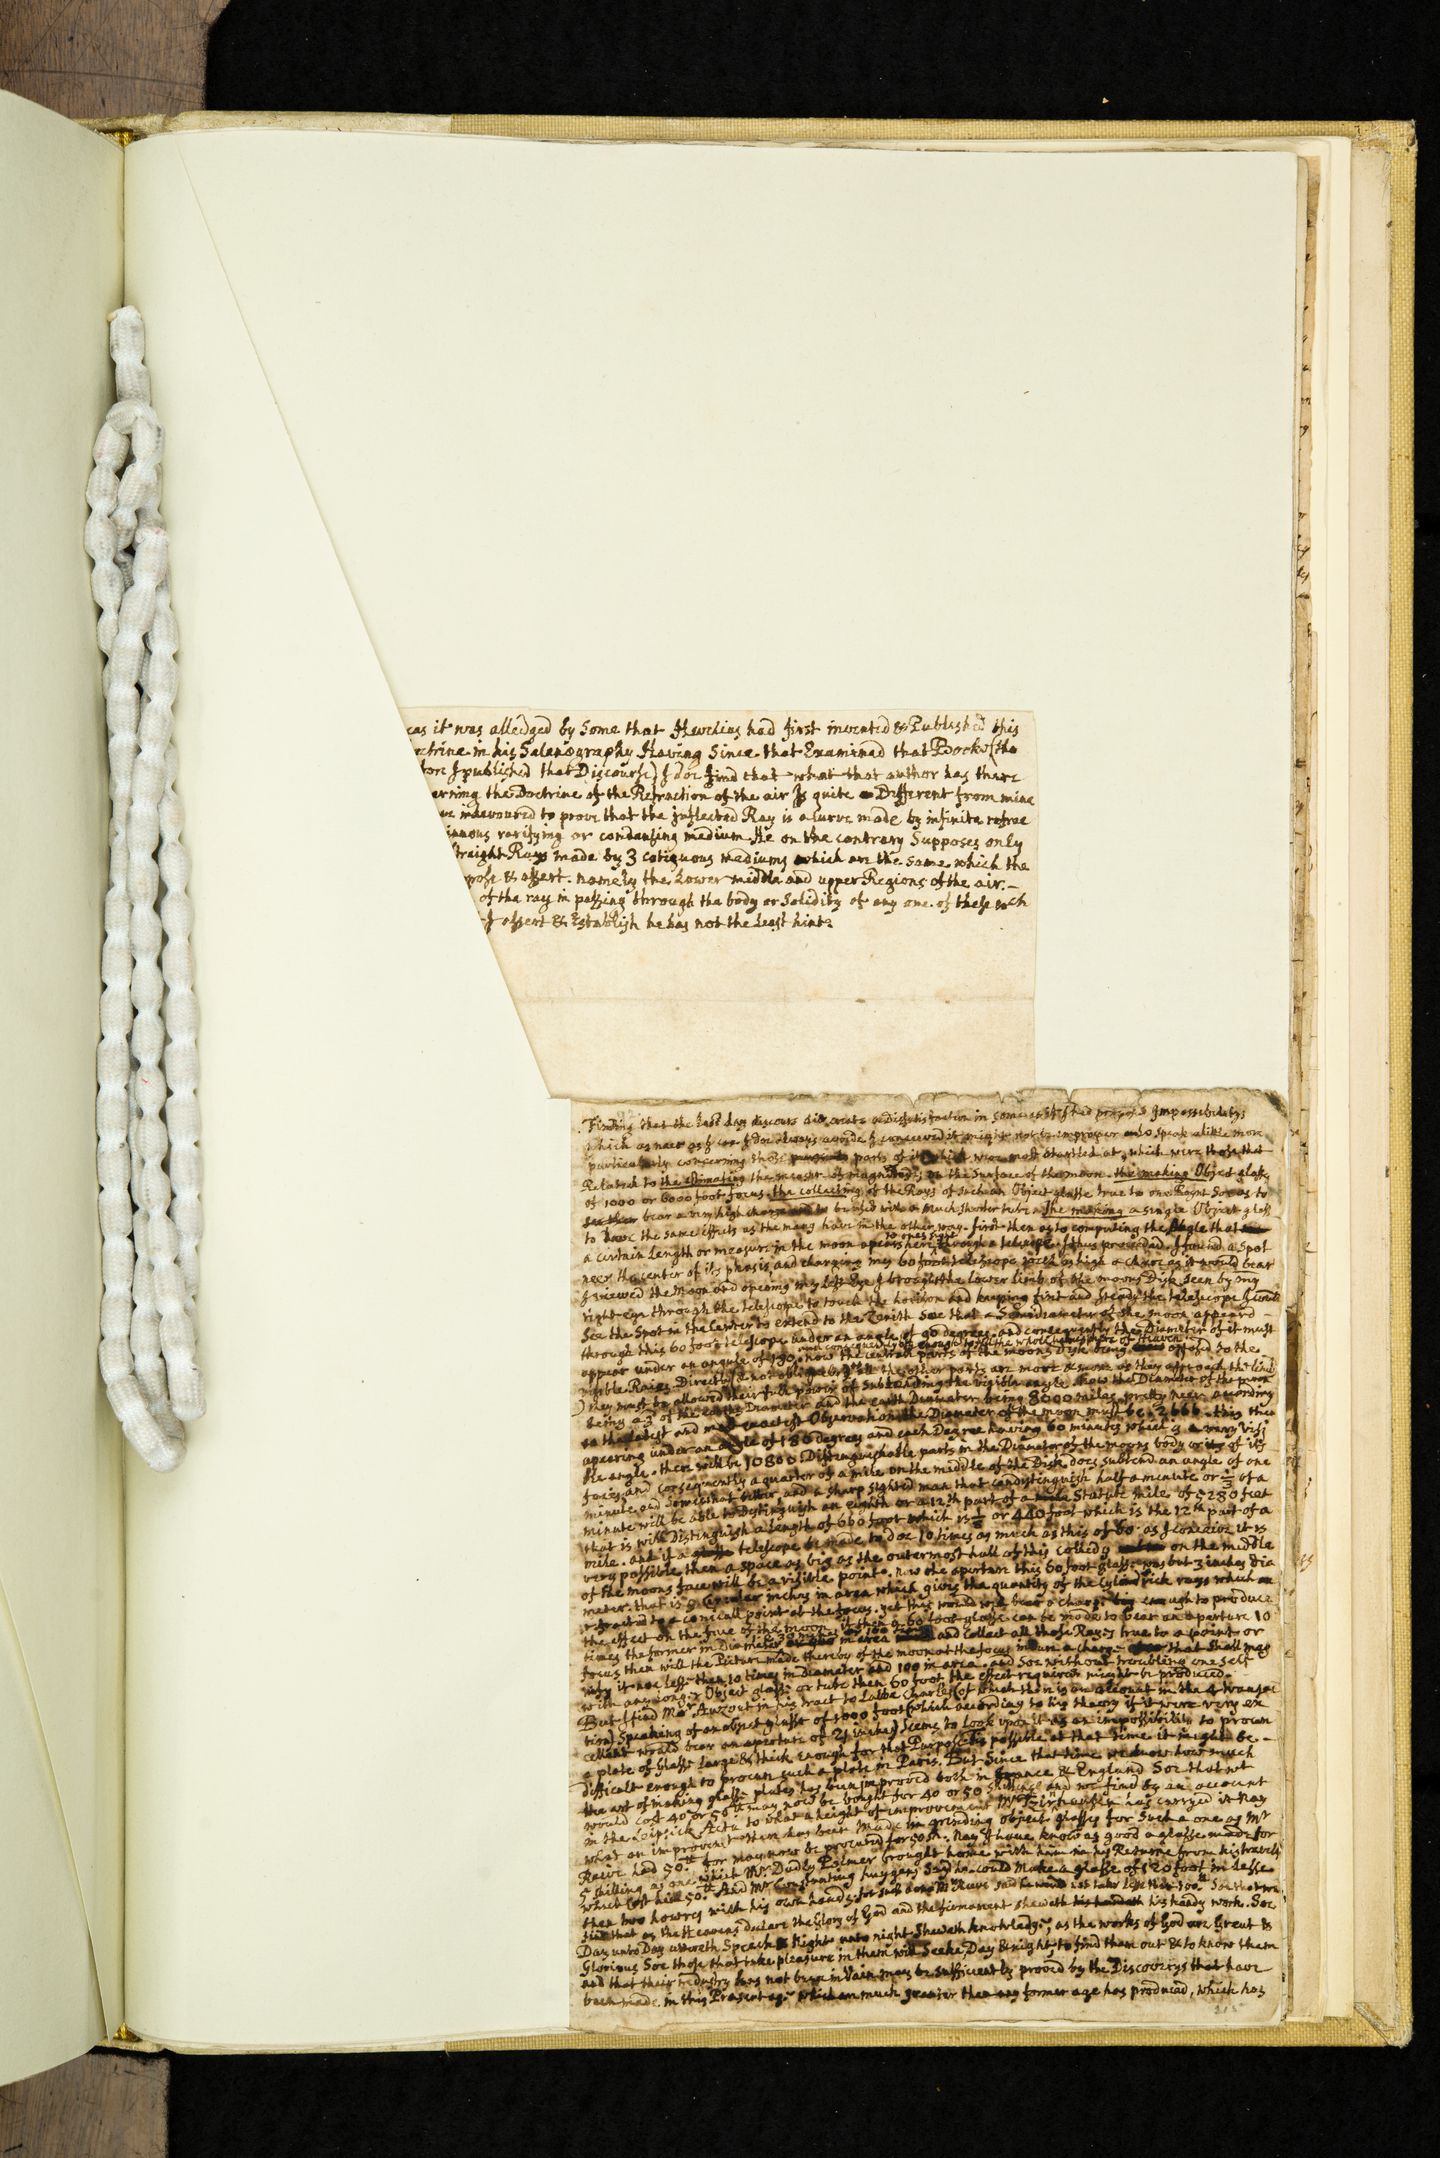 cas it was alledged by Some that Hevelius had first invented & Published this
ctrine in his Salanography Having Since that Examined that Booke (the
fore I published that Discourse) I doe find that what that author has there
erning the Doctrine of the Refraction of the air Is quite Different from mine
ve indeavoured to prove that the inflected Ray is a curve made by infinite refrac
inuous rarifying or condensing medium. He on the contrary Supposes only
straight Rays made by 3 cotiguous mediums which are the same which the
pose & assert. namely the Lower middle and upper Regions of the air. –
of the ray in passing through the body or Solidity of any one of these wch
I assert & Establish he has not the Least hint.
Finding that the last day discours did create a disatisfaction in some as if I had proposed Impossibilitys
which as neer as I can I doe always avoide I conceived it might not be improper to speak a little more
particularly concerning those parts of it which were most startled at, which were those that
Related to the estimating the measur of magnitudes on the Surface of the moon. the making Object glasse
of 1000 or 6000 foot focus. the collecting of the Rays of such an Object glasse true to one Point Soe as to
bear a very high charge and to be used with a much shorter tube. The making a single Object glass
to have the same effects as the many have in the other way. first then as to computing the Angle that
a certain Length or measure in the moon apears here to ones sight through a telescope. I thus proceeded. I found a Spot
neer the center of its phasis, and charging my 60 foot telescope with as high a charge as it would bear
I viewed the Moon and opening my left Eye I brought the lower limb of the moons Disk seen by my
right eye through the telescope to touch the horison and keeping first and steady the telescope I could
See the Spot in the Center to extend to the Zenith Soe that a Semidiameter of the moon appeard
through this 60 foot telescope under an angle of 90 degrees. and consequently the Diameter of it must
appear under an angule of 180. and consequently big enough to fill the whole hemisphere of Heaven
now the central parts of the moons Disk being opposed to the
visible Raies Directly & not obliquely as all the other parts are more & more as they approach the limb
they must be allowed their full power of subtending the visible angle. now the Diameter of the moon
being a 3d of the earths Diameter and the earth Diameter being 8000 miles pretty neer according
to the latest and most exactest Observations the Diameter of the moon must be. 2666. this then
apearing under an angle of 180 degrees and each Degree having 60 minutes which is a very visi
ble angle. there will be 10800 Distinguishable parts in the Diameter of the moons body or of its
face. and consequently a quarter of a mile on the middle of the Disk does subtend an angle of one
minute and somewhat better and a sharp sighted man that can distinguish half a minute or 1/3 of a
minute will be able to Distinguish an eighth or a 12th part of a Statute mile of 5280 feet
that is will Distinguish a length of 660 foot which is 1/8 or 440 foot which is the 12th part of a
mile. and if a telescope be made to doe 10 times as much as this of 60 as I conceive it is
very possible then a space as big as the outermost hall of this Colledg on the middle
of the moons face will be a visible point. now the aperture this 60 foot glasse was but 3 inches dia
meter. that is 9 Circular inches in area which gives the quantity of the Cylindrick rays which
refracted to a conicall point at the focus. yet this would well bear a charge big enough to produce
the effect on the face of the moon. if then a 60 foot glasse can be made to bear an aperture 10
times the former in Diameter in area and collect all those Rays true to a point or
focus then will the Picture made thereby of the moon at the focus indure a charge that shall mag
nify it noe less then 10 times in diameter and 100 in area. and Soe without troubling one self
with any longer Object glasse or tube then 60 foot the effect required might be produced.
But I find Mor Auzout in his tract to Labbe Charles (of which there is an account in the 4 transac
tion) Speaking of an object glasse of 1000 foot (which according to his theory if it were very ex
cellent would bear an aperture of 21 inches) Seems to Look upon it as an impossibility to procure
a plate of Glasse Large & thick enough for that Purpose possible at that time it might be. –
difficult enough to procure such a plate in Paris. But Since that time we know how much
the art of making glasse plates has been improved both in france & England Soe that wt
would cost 40 or 50 may now be bought for 40 or 50 shillings and we find by an account
in the Leipsick Acta to what a height of improvement Mr Tzirnhausen has carryed it Nay
what an improvement there has been made in grinding object glasses for Such a one as Mr
Reive had 50 for may now be procured for 50 sh. Nay I have known as good a glasse made for
5 shilling as one which Mr Dudly Palmer brought home with him in his Returne from his travels
which cost him 50. And Mr Constanting huygens Said he could make a glasse of 120 foot in Lesse
then two howres with his own hands. for such a one Mr Reive said he would not take less than 100 Soe that we
see that as the Heavens declare the Glory of God and the firmament sheweth his handy work. Soe
Day unto Day uttereth Speech & Night unto night Sheweth knowledge, as the works of God are Great &
Glorious Soe those that take pleasure in them will Seeke, Day & night to find them out & to know them
and that their industry has not been in Vain may be sufficiently proved by the Discoverys that have
been made in this Present age which are much greater then any former age has produced, which has